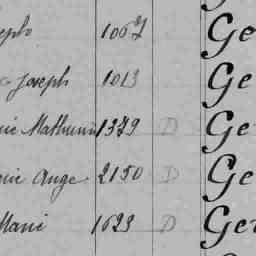 eph 1067 Ge
Joseph 1013 Ge
rie Mathurin 1379 D Ge
rie Ange 2150 D Ge
Marie 1623 D Ger